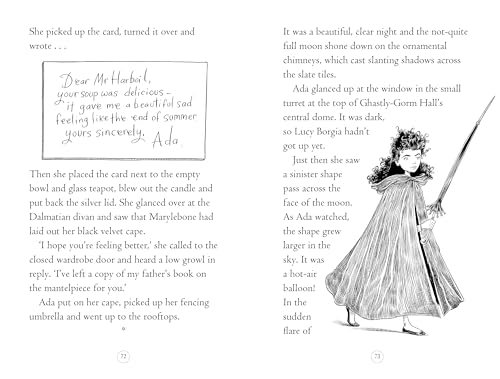 She picked up the card, turned it over and
wrote . . .
Dear Mr Harboil,
your soup was delicious –
it gave me a beautiful sad
feeling like the end of summer
yours sincerely,
Ada.
Then she placed the card next to the empty
bowl and glass teapot, blew out the candle and
put back the silver lid. She glanced over at the
Dalmatian divan and saw that Marylebone had
laid out her black velvet cape.
‘I hope you’re feeling better,’ she called to the
closed wardrobe door and heard a low growl in
reply. ‘I’ve left a copy of my father’s book on
the mantelpiece for you.’
Ada put on her cape, picked up her fencing
umbrella and went up to the rooftops.
*
72
It was a beautiful, clear night and the not-quite
full moon shone down on the ornamental
chimneys, which cast slanting shadows across
the slate tiles.
Ada glanced up at the window in the small
turret at the top of Ghastly-Gorm Hall’s
central dome. It was dark,
so Lucy Borgia hadn’t
got up yet.
Just then she saw
a sinister shape
pass across the
face of the moon.
As Ada watched,
the shape grew
larger in the
sky. It was
a hot-air
balloon!
In the
sudden
flare of
73